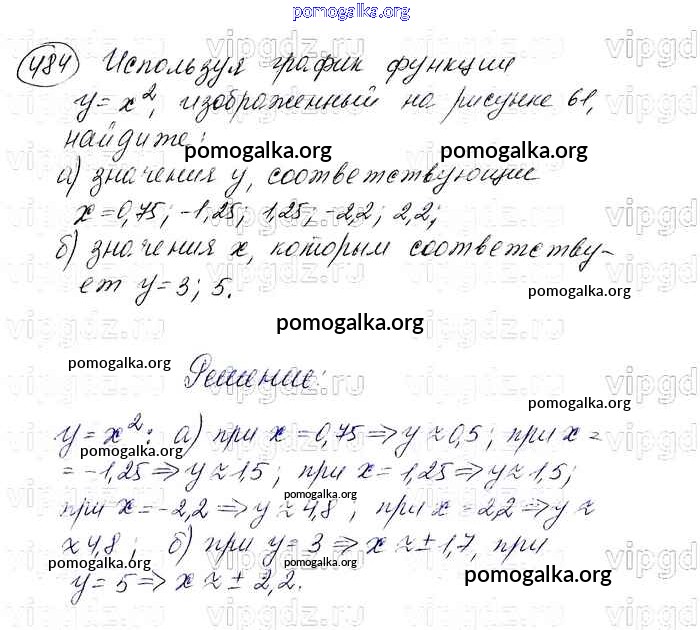 pomogalka.org
484 Используя график функции
y = x², изображенный на рисунке 61,
найдите:
pomogalka.org pomogalka.org
а) значения y, соответствующие
x = 0,75; -1,25; 1,25; -2,2; 2,2;
б) значения x, которым соответству-
ет y = 3; 5.
pomogalka.org
pomogalka.org
pomogalka.org
Решение:
pomogalka.org
y = x²: а) при x = 0,75 => y ≈ 0,5; при x =
pomogalka.org
= -1,25 => y ≈ 1,5; при x = 1,25 => y ≈ 1,5;
pomogalka.org
при x = -2,2 => y ≈ 4,8; при x = 2,2 => y ≈
≈ 4,8; б) при y = 3 => x ≈ ± 1,7, при
pomogalka.org pomogalka.org
y = 5 => x ≈ ± 2,2.
pomogalka.org